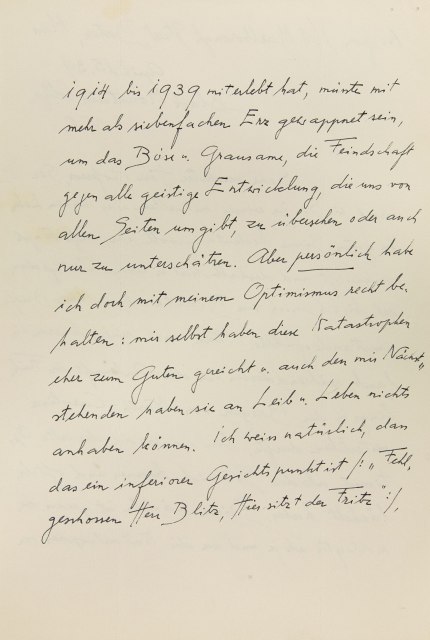 1914 bis 1939 miterlebt hat, müsste mit
mehr als siebenfachen Erz gewappnet sein,
um das Böse u. Grausame, die Feindschaft
gegen alle geistige Entwicklung, die uns von
allen Seiten umgibt, zu übersehen oder auch
nur zu unterschätzen. Aber persönlich habe
ich doch mit meinem Optimismus recht be-
halten: mir selbst haben diese Katastrophen
eher zum Guten gereicht u. auch den mir Nächst-
stehenden haben sie an Leib u. Leben nichts
anhaben können. Ich weiss natürlich, dass
das ein inferiorer Gesichtspunkt ist /: „Fehl-
geschossen Herr Blitz, Hier sitzt der Fritz“ :/,